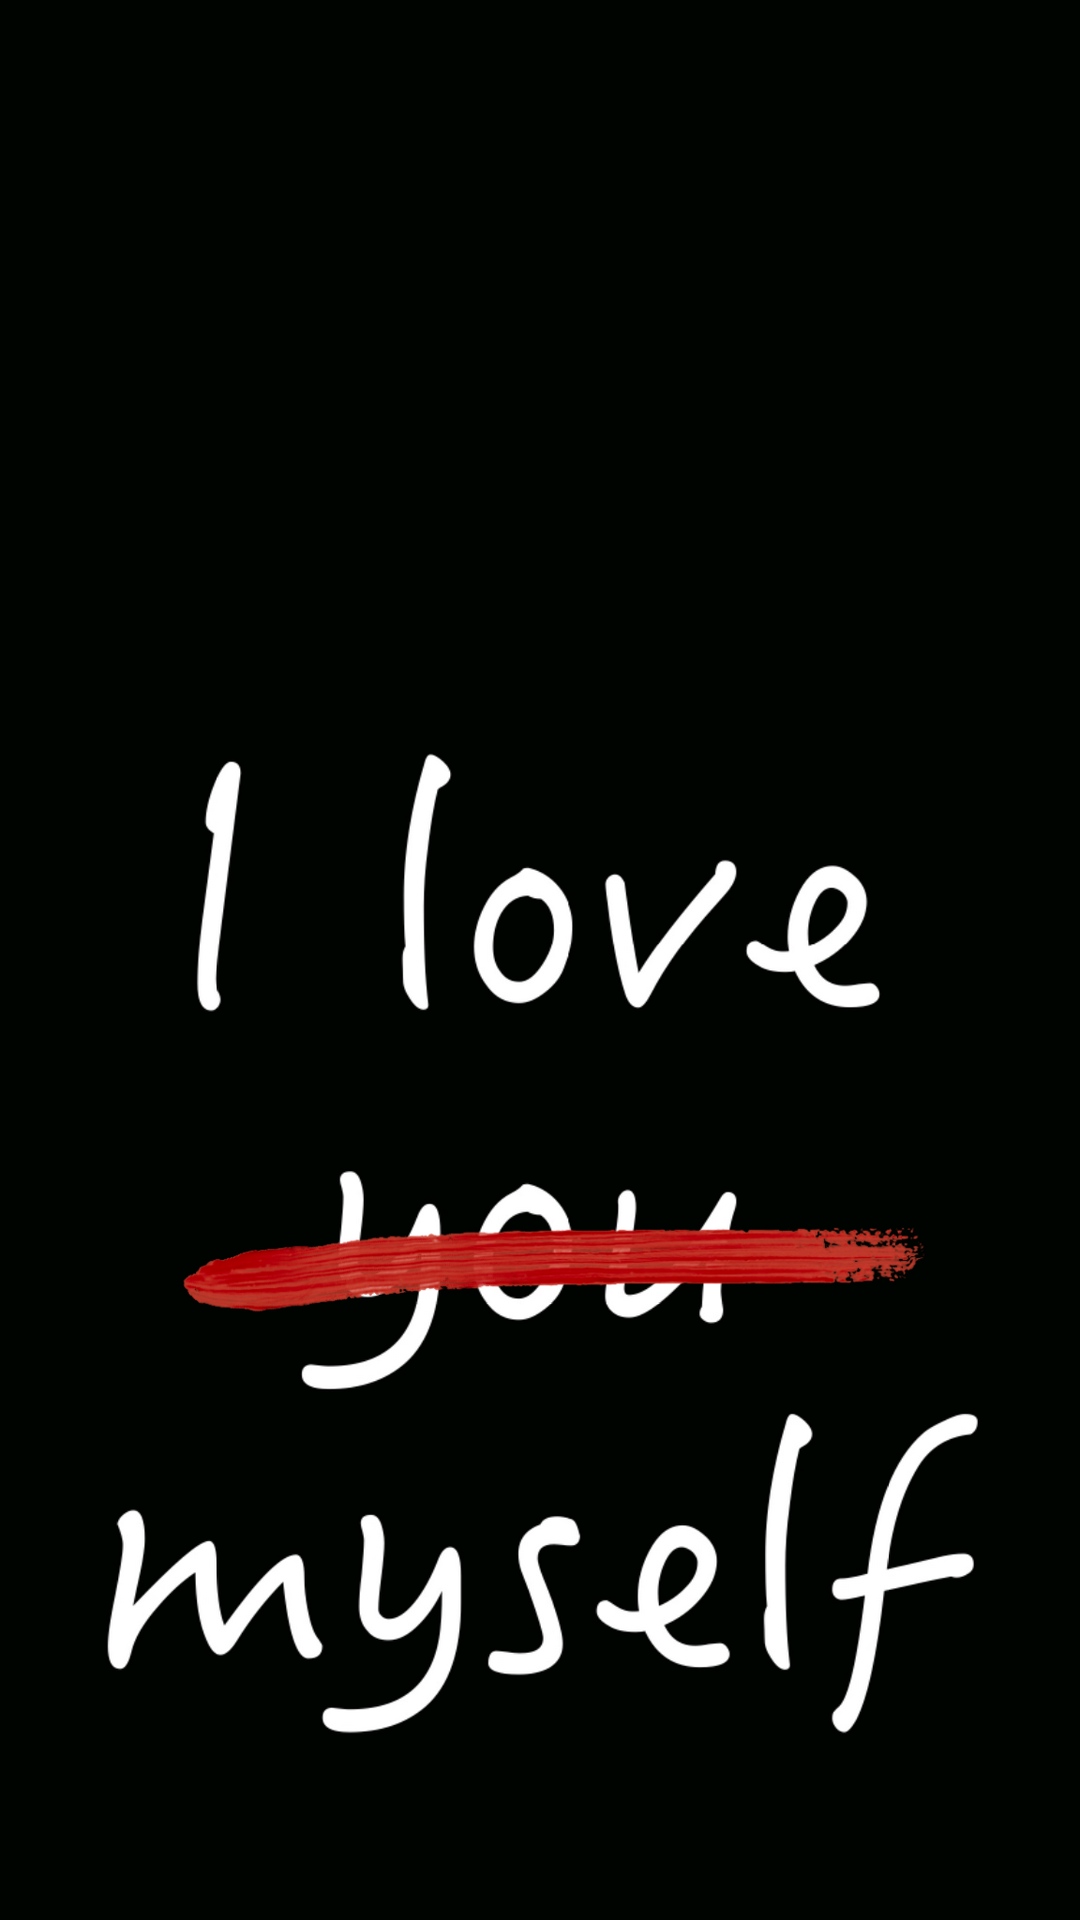 I love
you
myself